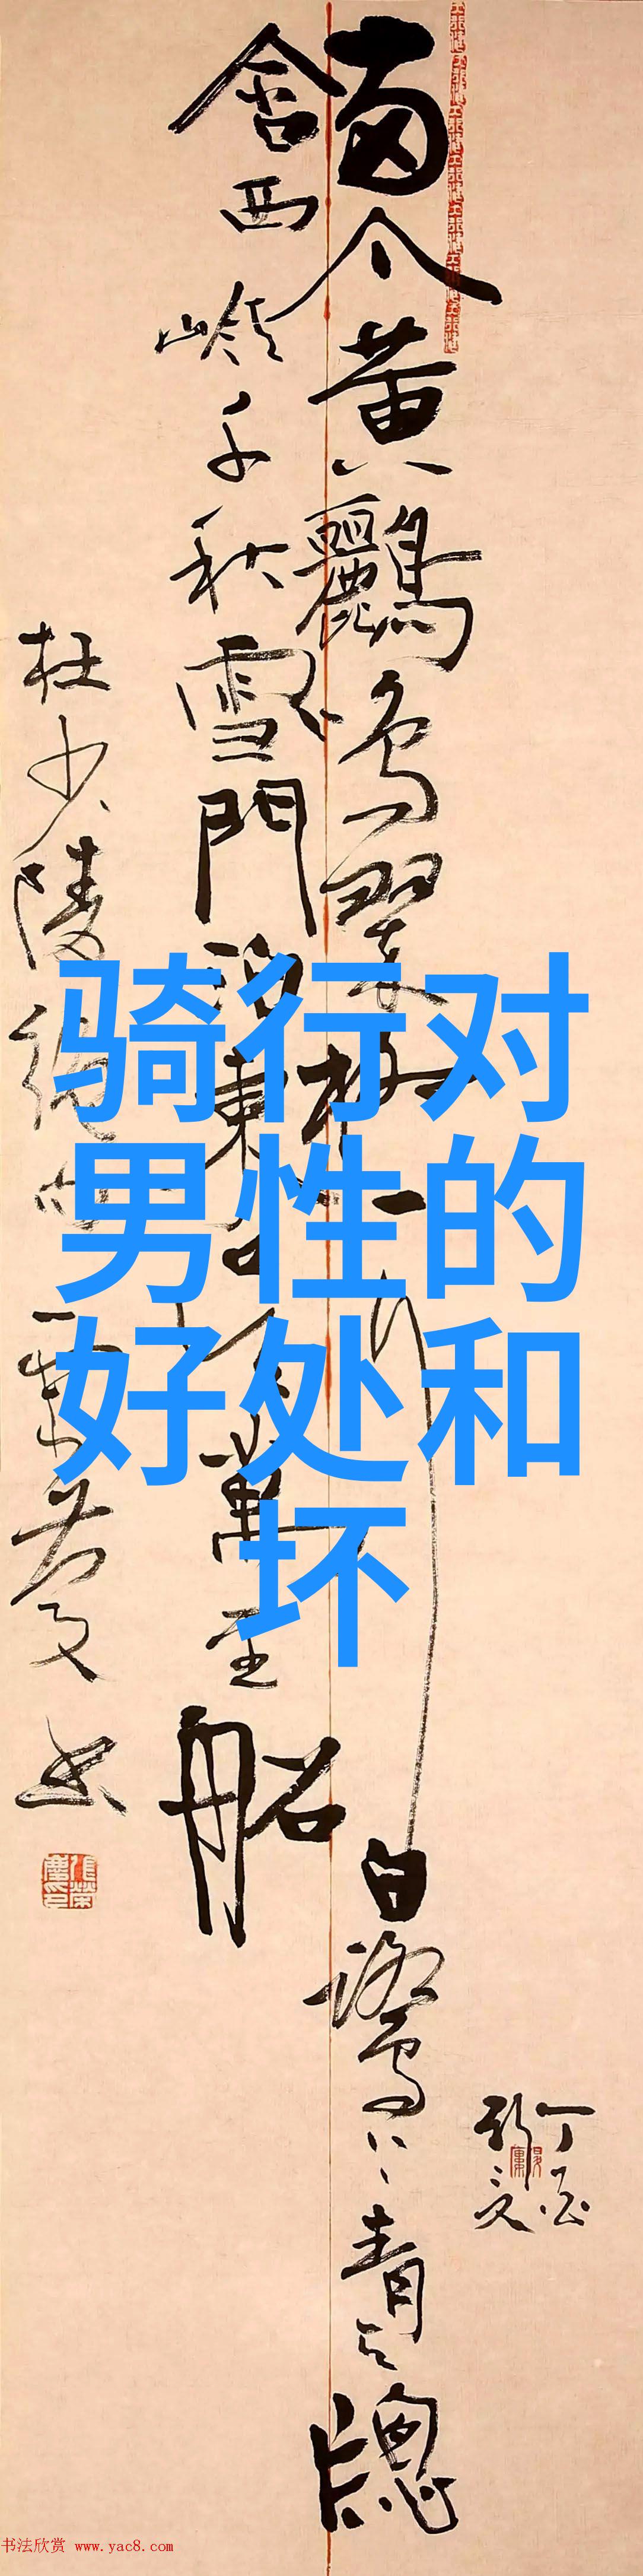 兩个黄鸝鸣翠柳一行白鷺上青天牕
含西嶺千秋雪門泊東吴萬里船
杜少陵絕句
丁酉
骑行对
男性的
好处和
坏
书法欣赏 www.yac8.com